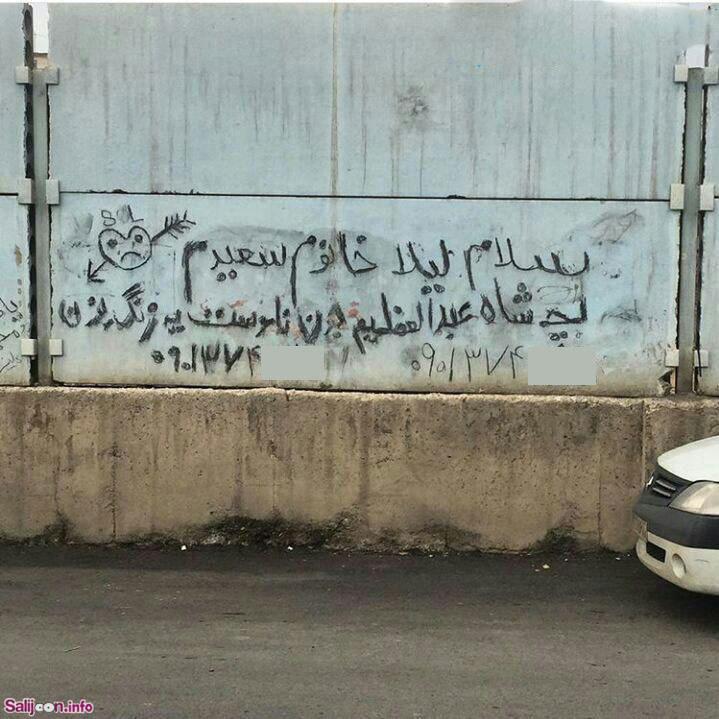 S L
سلام لیلا خانوم سعیدم
بچه شاه عبدالعظیم جون ناموست یه زنگ بزن
۰۹۰۱۳۷۴ ۰۹۰۱۳۷۴
Salijoon.info